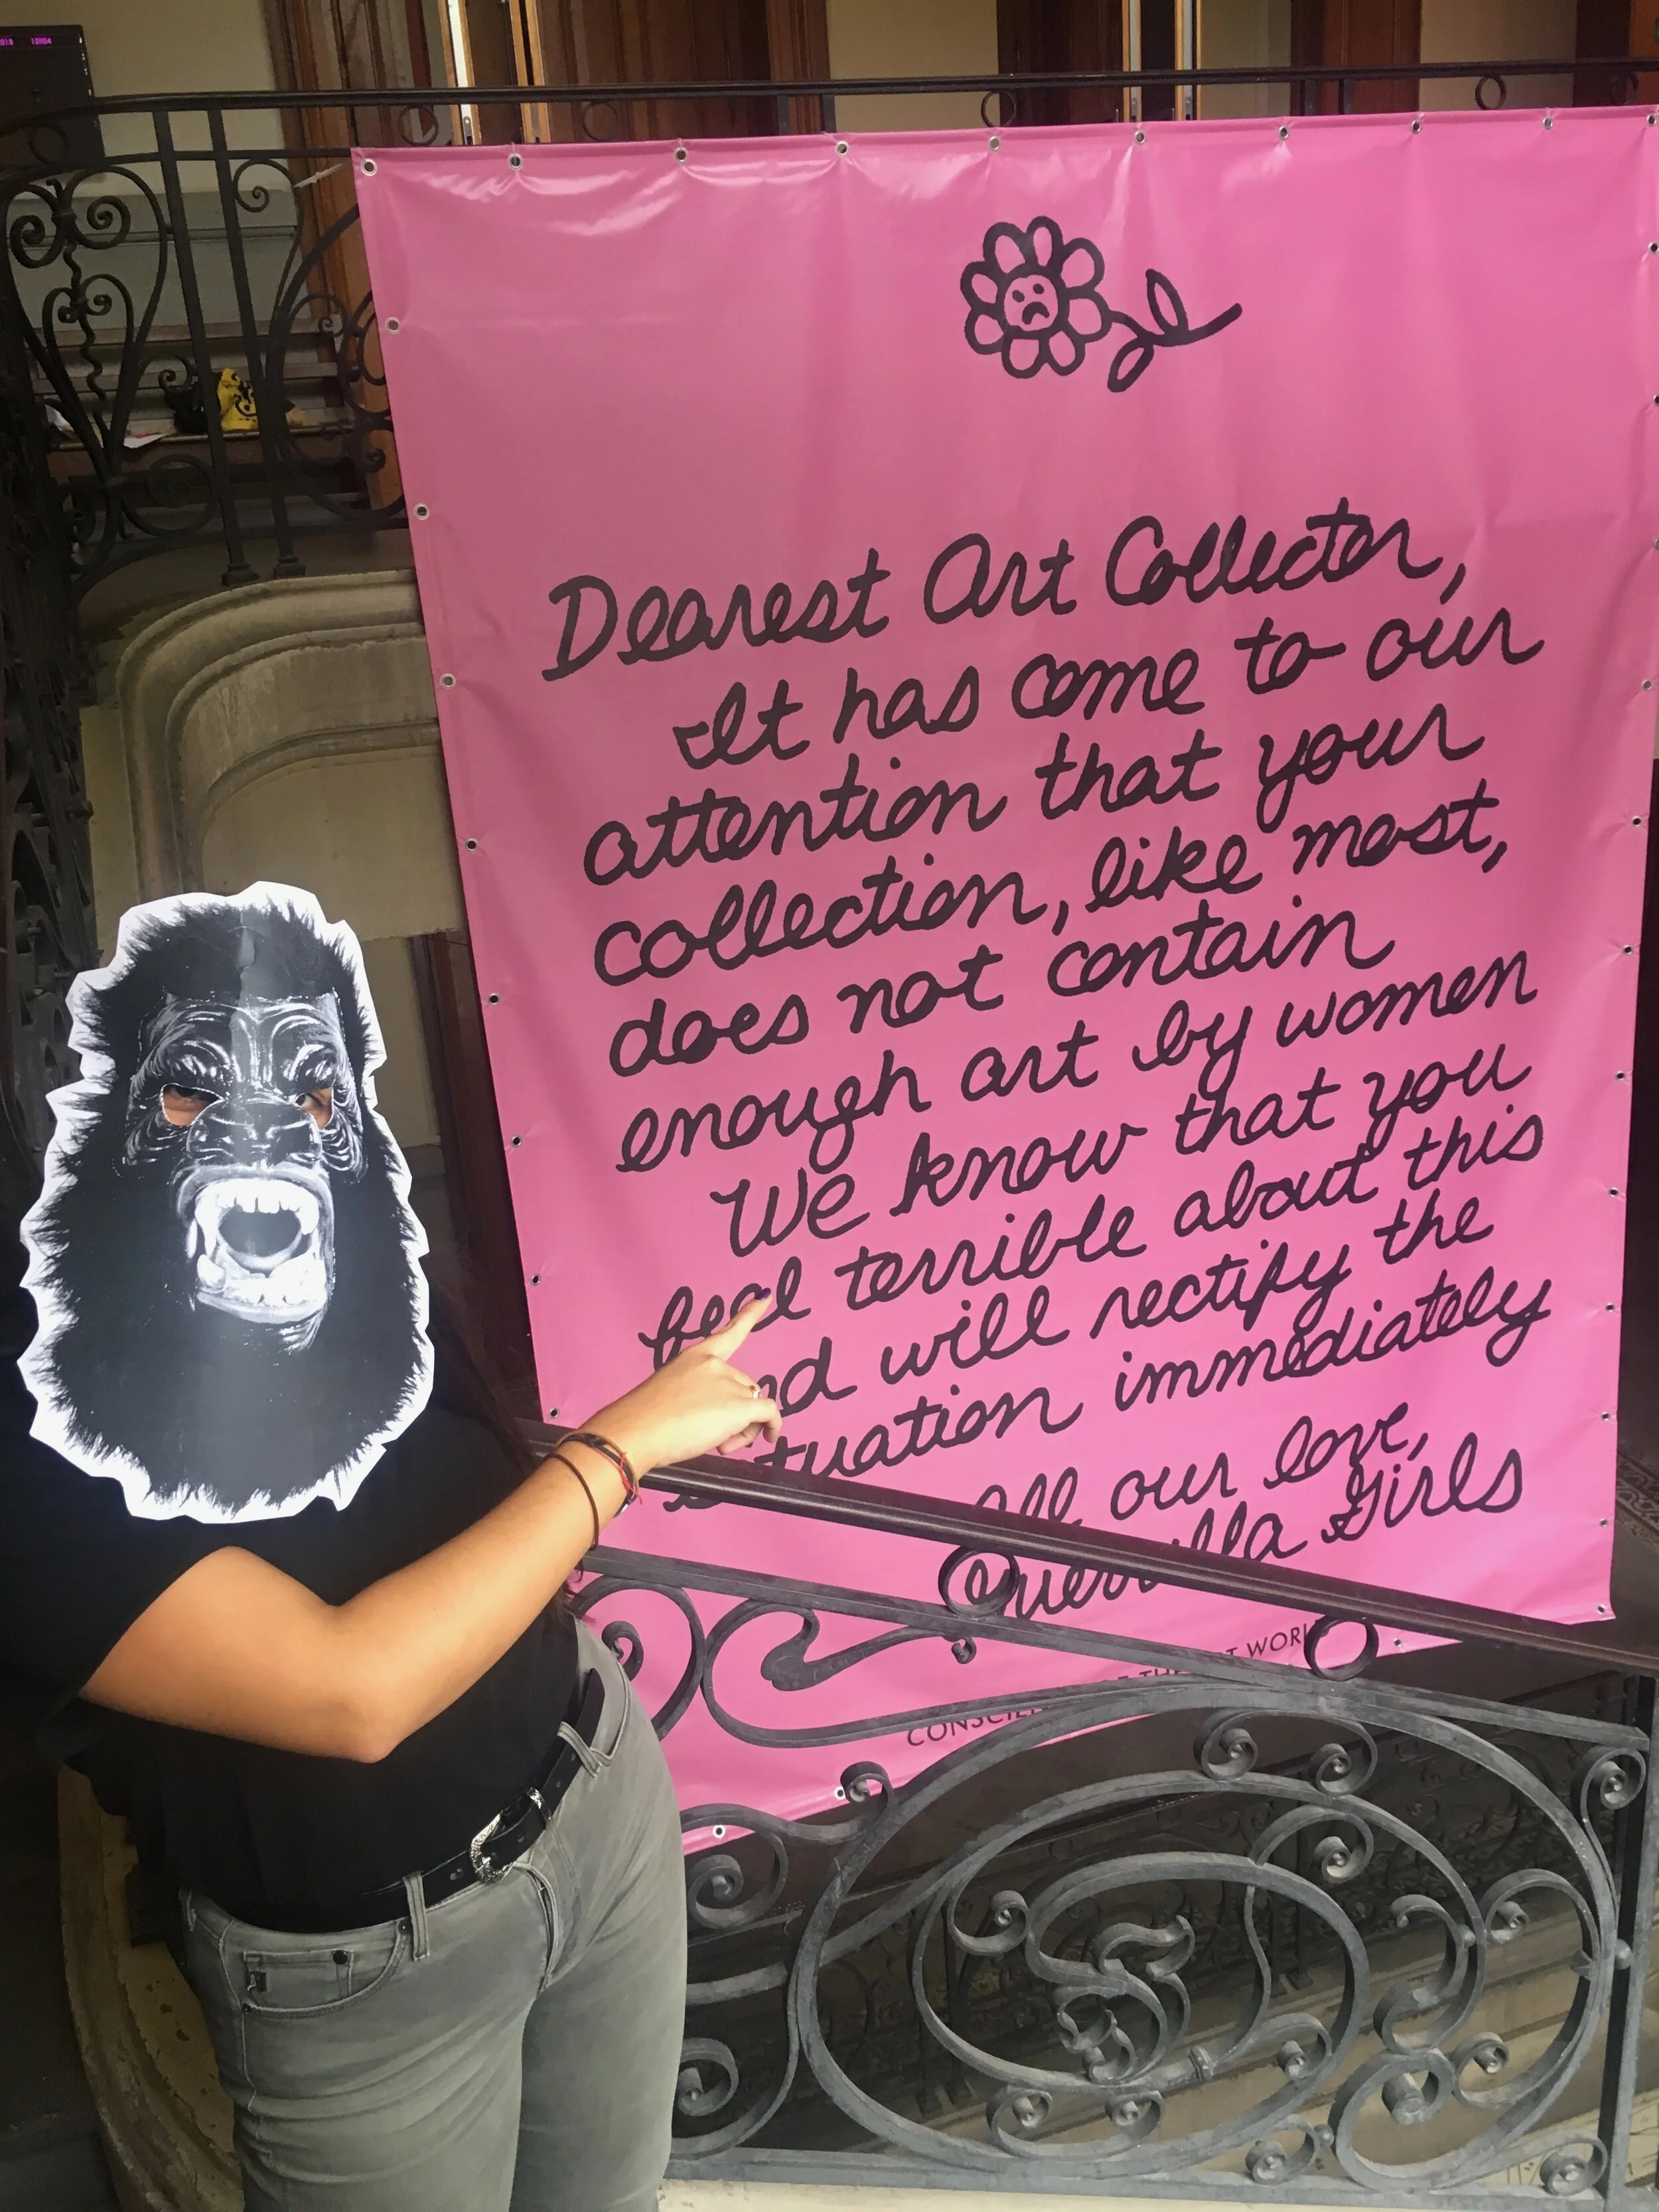 2019 12H04
Dearest Art Collector,
It has come to our
attention that your
collection, like most,
does not contain
enough art by women
We know that you
feel terrible about this
and will rectify the
situation immediately
All our love,
Guerrilla Girls
CONSCIENCE OF THE ART WORLD